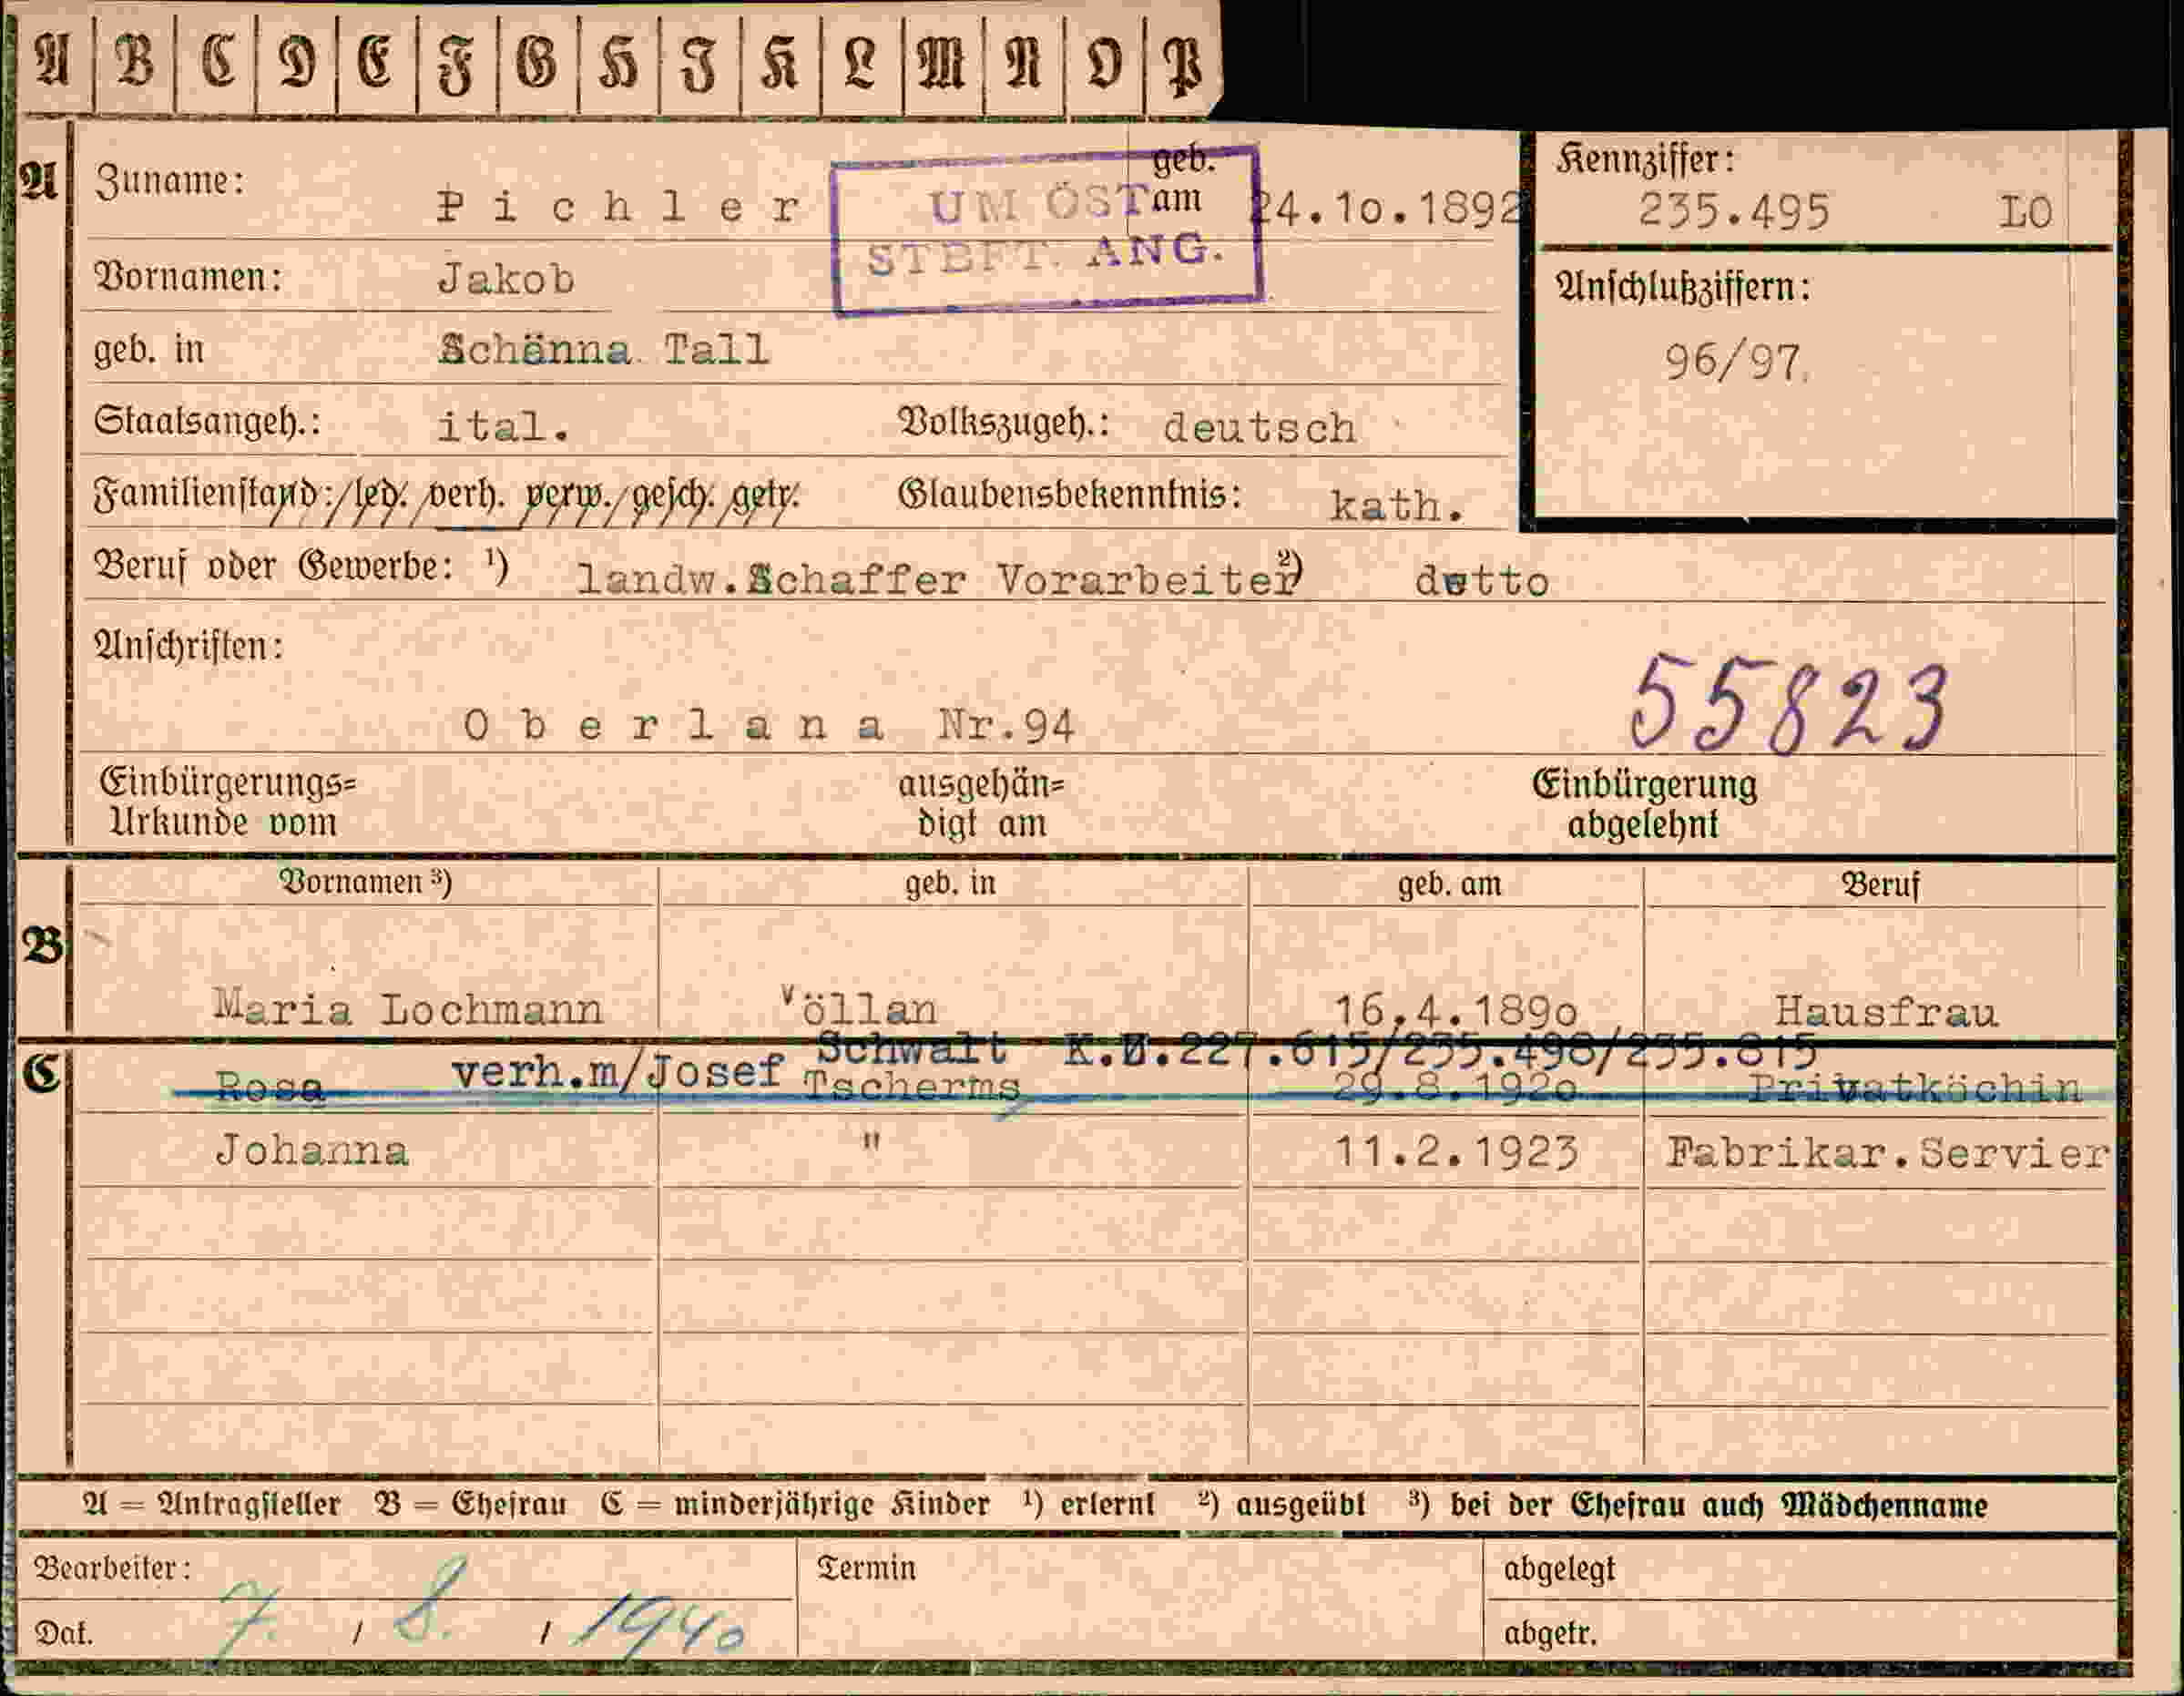 A B C D E F G H I K L M N O P
A
Zuname: Pichler
geb. am 24.1o.1892
UM ÖST
STBFT. ANG.
Kennziffer:
235.495 LO
Vornamen: Jakob
Anschlußziffern:
96/97.
geb. in Schänna Tall
Staatsangeh.: ital. Volkszugeh.: deutsch
Familienstand: led. verh. verw. gesch. getr. Glaubensbekenntnis: kath.
Beruf oder Gewerbe: ¹) landw.Schaffer Vorarbeiter ²) detto
Anschriften:
Oberlana Nr.94
55823
Einbürgerungs=
Urkunde vom
ausgehän=
digt am
Einbürgerung
abgelehnt
Vornamen ³) geb. in geb. am Beruf
B
Maria Lochmann Völlan 16.4.189o Hausfrau
C
verh.m/Josef Schwalt K.Z.227.615/235.498/235.815
Rosa Tscherms 29.8.192o Privatköchin
Johanna " 11.2.1923 Fabrikar.Servier
A = Antragsteller B = Ehefrau C = minderjährige Kinder ¹) erlernt ²) ausgeübt ³) bei der Ehefrau auch Mädchenname
Bearbeiter:
Termin
abgelegt
Dat. 7. / 8. / 1940
abgetr.